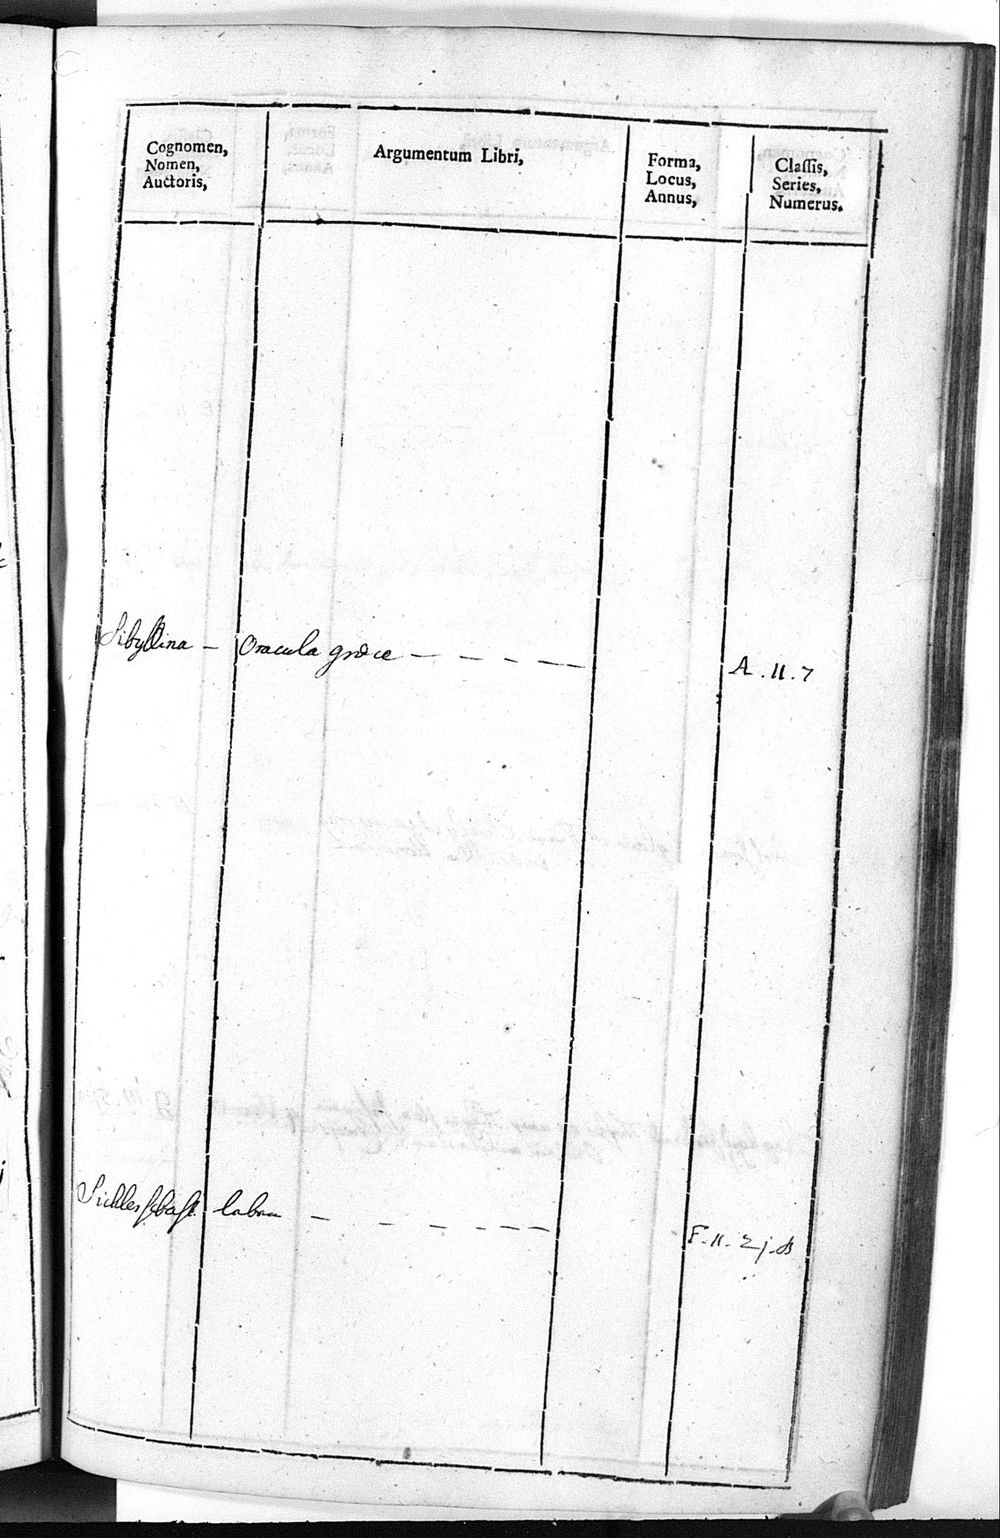 Cognomen,
Nomen,
Auctoris,
Argumentum Libri,
Forma,
Locus,
Annus,
Classis,
Series,
Numerus.
Sibyllina — Oracula græce — - - - — A . II . 7
labra — - - - — F. II.